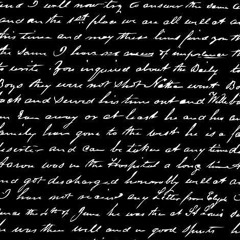 and I will now try to answer the same a
and in the 1st place we are all well at
this time and may these lines find you th
the same I have no news of importance to
to write You inquired about the Daily
Boys they were not shot Nathan went
and served his time out and Wilb
Ran away or at least he and his
family has gone to the west he is a
deserter and can be taken at any time
Aaron was in the Hospital a long time
and got discharged honorably well at
I have not received any letter from Clyde
the 14th of June he was then at St Louis
he was then well and in good spirits he